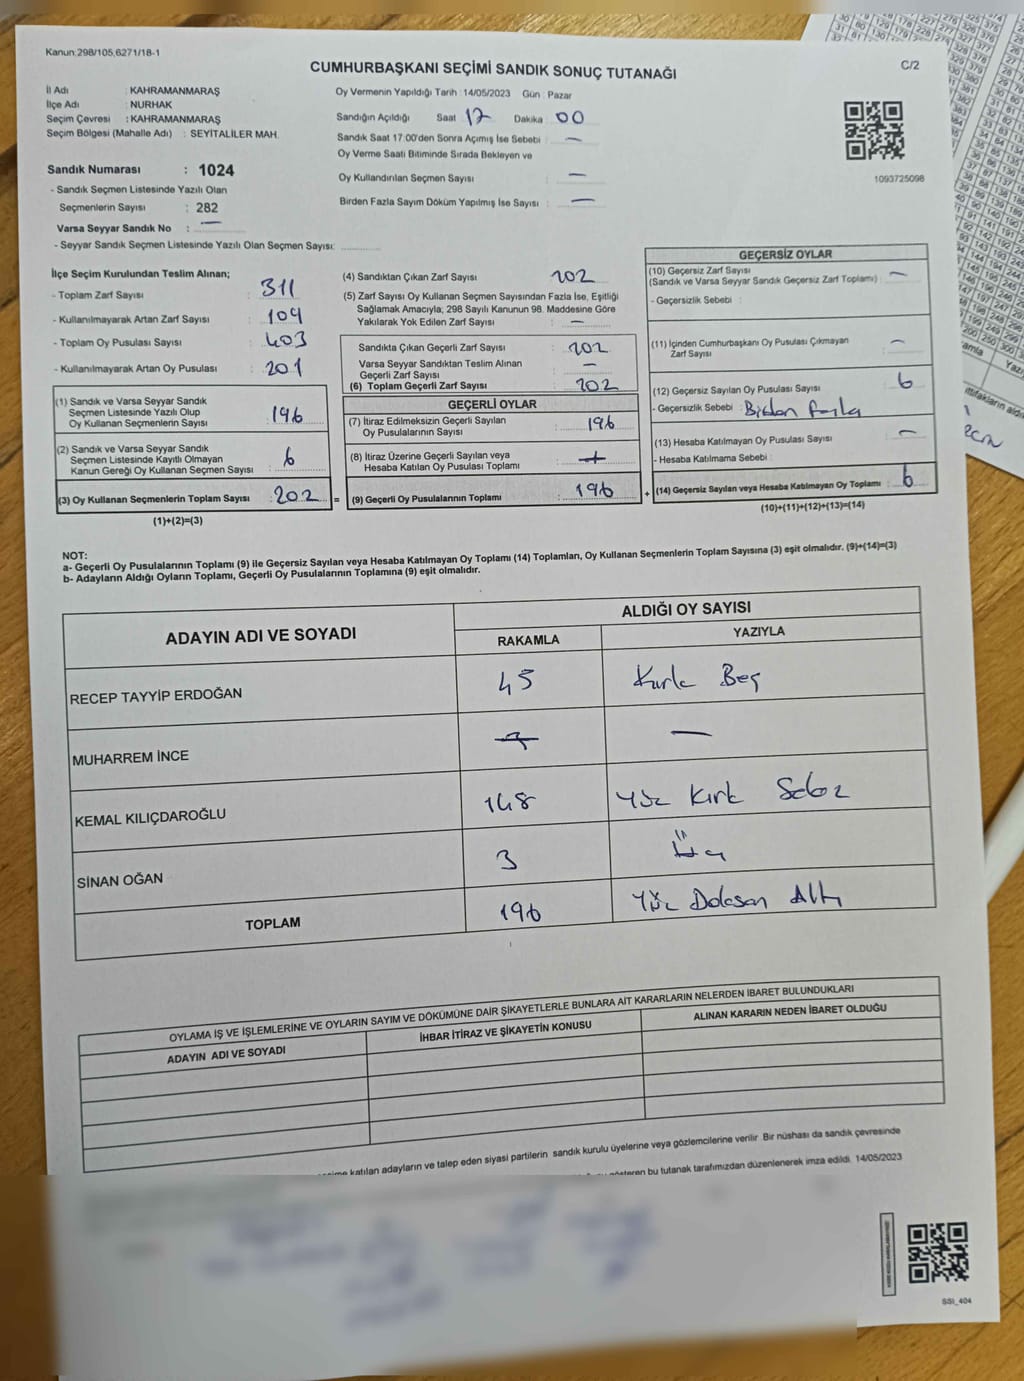 Kanun:298/105,6271/18-1
C/2
CUMHURBAŞKANI SEÇİMİ SANDIK SONUÇ TUTANAĞI
İl Adı : KAHRAMANMARAŞ
İlçe Adı : NURHAK
Seçim Çevresi : KAHRAMANMARAŞ
Seçim Bölgesi (Mahalle Adı) : SEYİTALİLER MAH.
Oy Vermenin Yapıldığı Tarih :14/05/2023 Gün : Pazar
Sandığın Açıldığı Saat 17 Dakika 00
Sandık Saat 17:00'den Sonra Açımış İse Sebebi : —
Oy Verme Saati Bitiminde Sırada Bekleyen ve
Oy Kullandırılan Seçmen Sayısı : —
Birden Fazla Sayım Döküm Yapılmış İse Sayısı : —
1093725098
Sandık Numarası : 1024
- Sandık Seçmen Listesinde Yazılı Olan
Seçmenlerin Sayısı : 282
Varsa Seyyar Sandık No : —
- Seyyar Sandık Seçmen Listesinde Yazılı Olan Seçmen Sayısı:
İlçe Seçim Kurulundan Teslim Alınan;
- Toplam Zarf Sayısı : 311
- Kullanılmayarak Artan Zarf Sayısı : 109
- Toplam Oy Pusulası Sayısı : 403
- Kullanılmayarak Artan Oy Pusulası : 201
(1) Sandık ve Varsa Seyyar Sandık
Seçmen Listesinde Yazılı Olup
Oy Kullanan Seçmenlerin Sayısı : 196
(2) Sandık ve Varsa Seyyar Sandık
Seçmen Listesinde Kayıtlı Olmayan
Kanun Gereği Oy Kullanan Seçmen Sayısı : 6
(3) Oy Kullanan Seçmenlerin Toplam Sayısı : 202
(1)+(2)=(3)
(4) Sandıktan Çıkan Zarf Sayısı 202
(5) Zarf Sayısı Oy Kullanan Seçmen Sayısından Fazla İse, Eşitliği
Sağlamak Amacıyla, 298 Sayılı Kanunun 98. Maddesine Göre
Yakılarak Yok Edilen Zarf Sayısı : —
Sandıkta Çıkan Geçerli Zarf Sayısı : 202
Varsa Seyyar Sandıktan Teslim Alınan
Geçerli Zarf Sayısı : —
(6) Toplam Geçerli Zarf Sayısı : 202
GEÇERLİ OYLAR
(7) İtiraz Edilmeksizin Geçerli Sayılan
Oy Pusulalarının Sayısı : 196
(8) İtiraz Üzerine Geçerli Sayılan veya
Hesaba Katılan Oy Pusulası Toplamı : —
= (9) Geçerli Oy Pusulalarının Toplamı : 196
GEÇERSİZ OYLAR
(10) Geçersiz Zarf Sayısı
(Sandık ve Varsa Seyyar Sandık Geçersiz Zarf Toplamı) : —
- Geçersizlik Sebebi :
(11) İçinden Cumhurbaşkanı Oy Pusulası Çıkmayan
Zarf Sayısı : —
(12) Geçersiz Sayılan Oy Pusulası Sayısı : 6
- Geçersizlik Sebebi : Birden fazla
(13) Hesaba Katılmayan Oy Pusulası Sayısı : —
- Hesaba Katılmama Sebebi :
+ (14) Geçersiz Sayılan veya Hesaba Katılmayan Oy Toplamı : 6
(10)+(11)+(12)+(13)=(14)
NOT:
a- Geçerli Oy Pusulalarının Toplamı (9) ile Geçersiz Sayılan veya Hesaba Katılmayan Oy Toplamı (14) Toplamları, Oy Kullanan Seçmenlerin Toplam Sayısına (3) eşit olmalıdır. (9)+(14)=(3)
b- Adayların Aldığı Oyların Toplamı, Geçerli Oy Pusulalarının Toplamına (9) eşit olmalıdır.
ADAYIN ADI VE SOYADI
ALDIĞI OY SAYISI
RAKAMLA YAZIYLA
RECEP TAYYİP ERDOĞAN 45 Kırk Beş
MUHARREM İNCE — —
KEMAL KILIÇDAROĞLU 148 Yüz Kırk Sekiz
SİNAN OĞAN 3 Üç
TOPLAM 196 Yüz Doksan Altı
OYLAMA İŞ VE İŞLEMLERİNE VE OYLARIN SAYIM VE DÖKÜMÜNE DAİR ŞİKAYETLERLE BUNLARA AİT KARARLARIN NELERDEN İBARET BULUNDUKLARI
ADAYIN ADI VE SOYADI İHBAR İTİRAZ VE ŞİKAYETİN KONUSU ALINAN KARARIN NEDEN İBARET OLDUĞU
katılan adayların ve talep eden siyasi partilerin sandık kurulu üyelerine veya gözlemcilerine verilir. Bir nüshası da sandık çevresinde
gösteren bu tutanak tarafımızdan düzenlenerek imza edildi. 14/05/2023
SSI_404